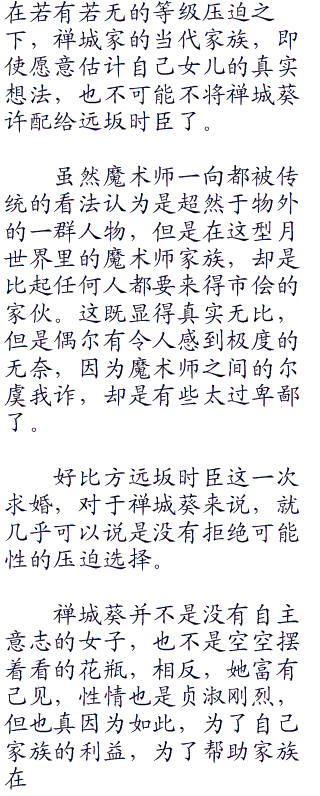 在若有若无的等级压迫之
下，禅城家的当代家族，即
使愿意估计自己女儿的真实
想法，也不可能不将禅城葵
许配给远坂时臣了。
虽然魔术师一向都被传
统的看法认为是超然于物外
的一群人物，但是在这型月
世界里的魔术师家族，却是
比起任何人都要来得市侩的
家伙。这既显得真实无比，
但是偶尔有令人感到极度的
无奈，因为魔术师之间的尔
虞我诈，却是有些太过卑鄙
了。
好比方远坂时臣这一次
求婚，对于禅城葵来说，就
几乎可以说是没有拒绝可能
性的压迫选择。
禅城葵并不是没有自主
意志的女子，也不是空空摆
着看的花瓶，相反，她富有
己见，性情也是贞淑刚烈，
但也真因为如此，为了自己
家族的利益，为了帮助家族
在